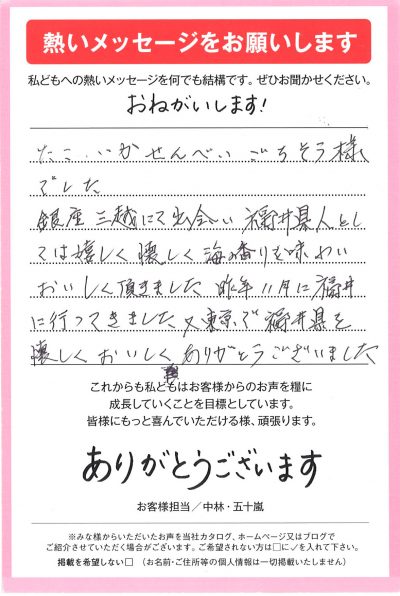 熱いメッセージをお願いします
私どもへの熱いメッセージを何でも結構です。ぜひお聞かせください。
おねがいします!
たこ・いかせんべい ごちそう様
でした
銀座三越にて出会い 福井県人とし
ては嬉しく懐しく海の香りを味わい
おいしく頂きました 昨年11月に福井
に行ってきました 又東京で福井県を
懐しくおいしく ありがとうございました
これからも私どもはお客様からのお声を糧に
成長していくことを目標としています。
皆様にもっと喜んでいただける様、頑張ります。
ありがとうございます
お客様担当／中林・五十嵐
※みな様からいただいたお声を当社カタログ、ホームページ又はブログで
ご紹介させていただく場合がございます。ご希望されない方は□に✓を入れて下さい。
掲載を希望しない□ （お名前・ご住所等の個人情報は一切掲載いたしません）